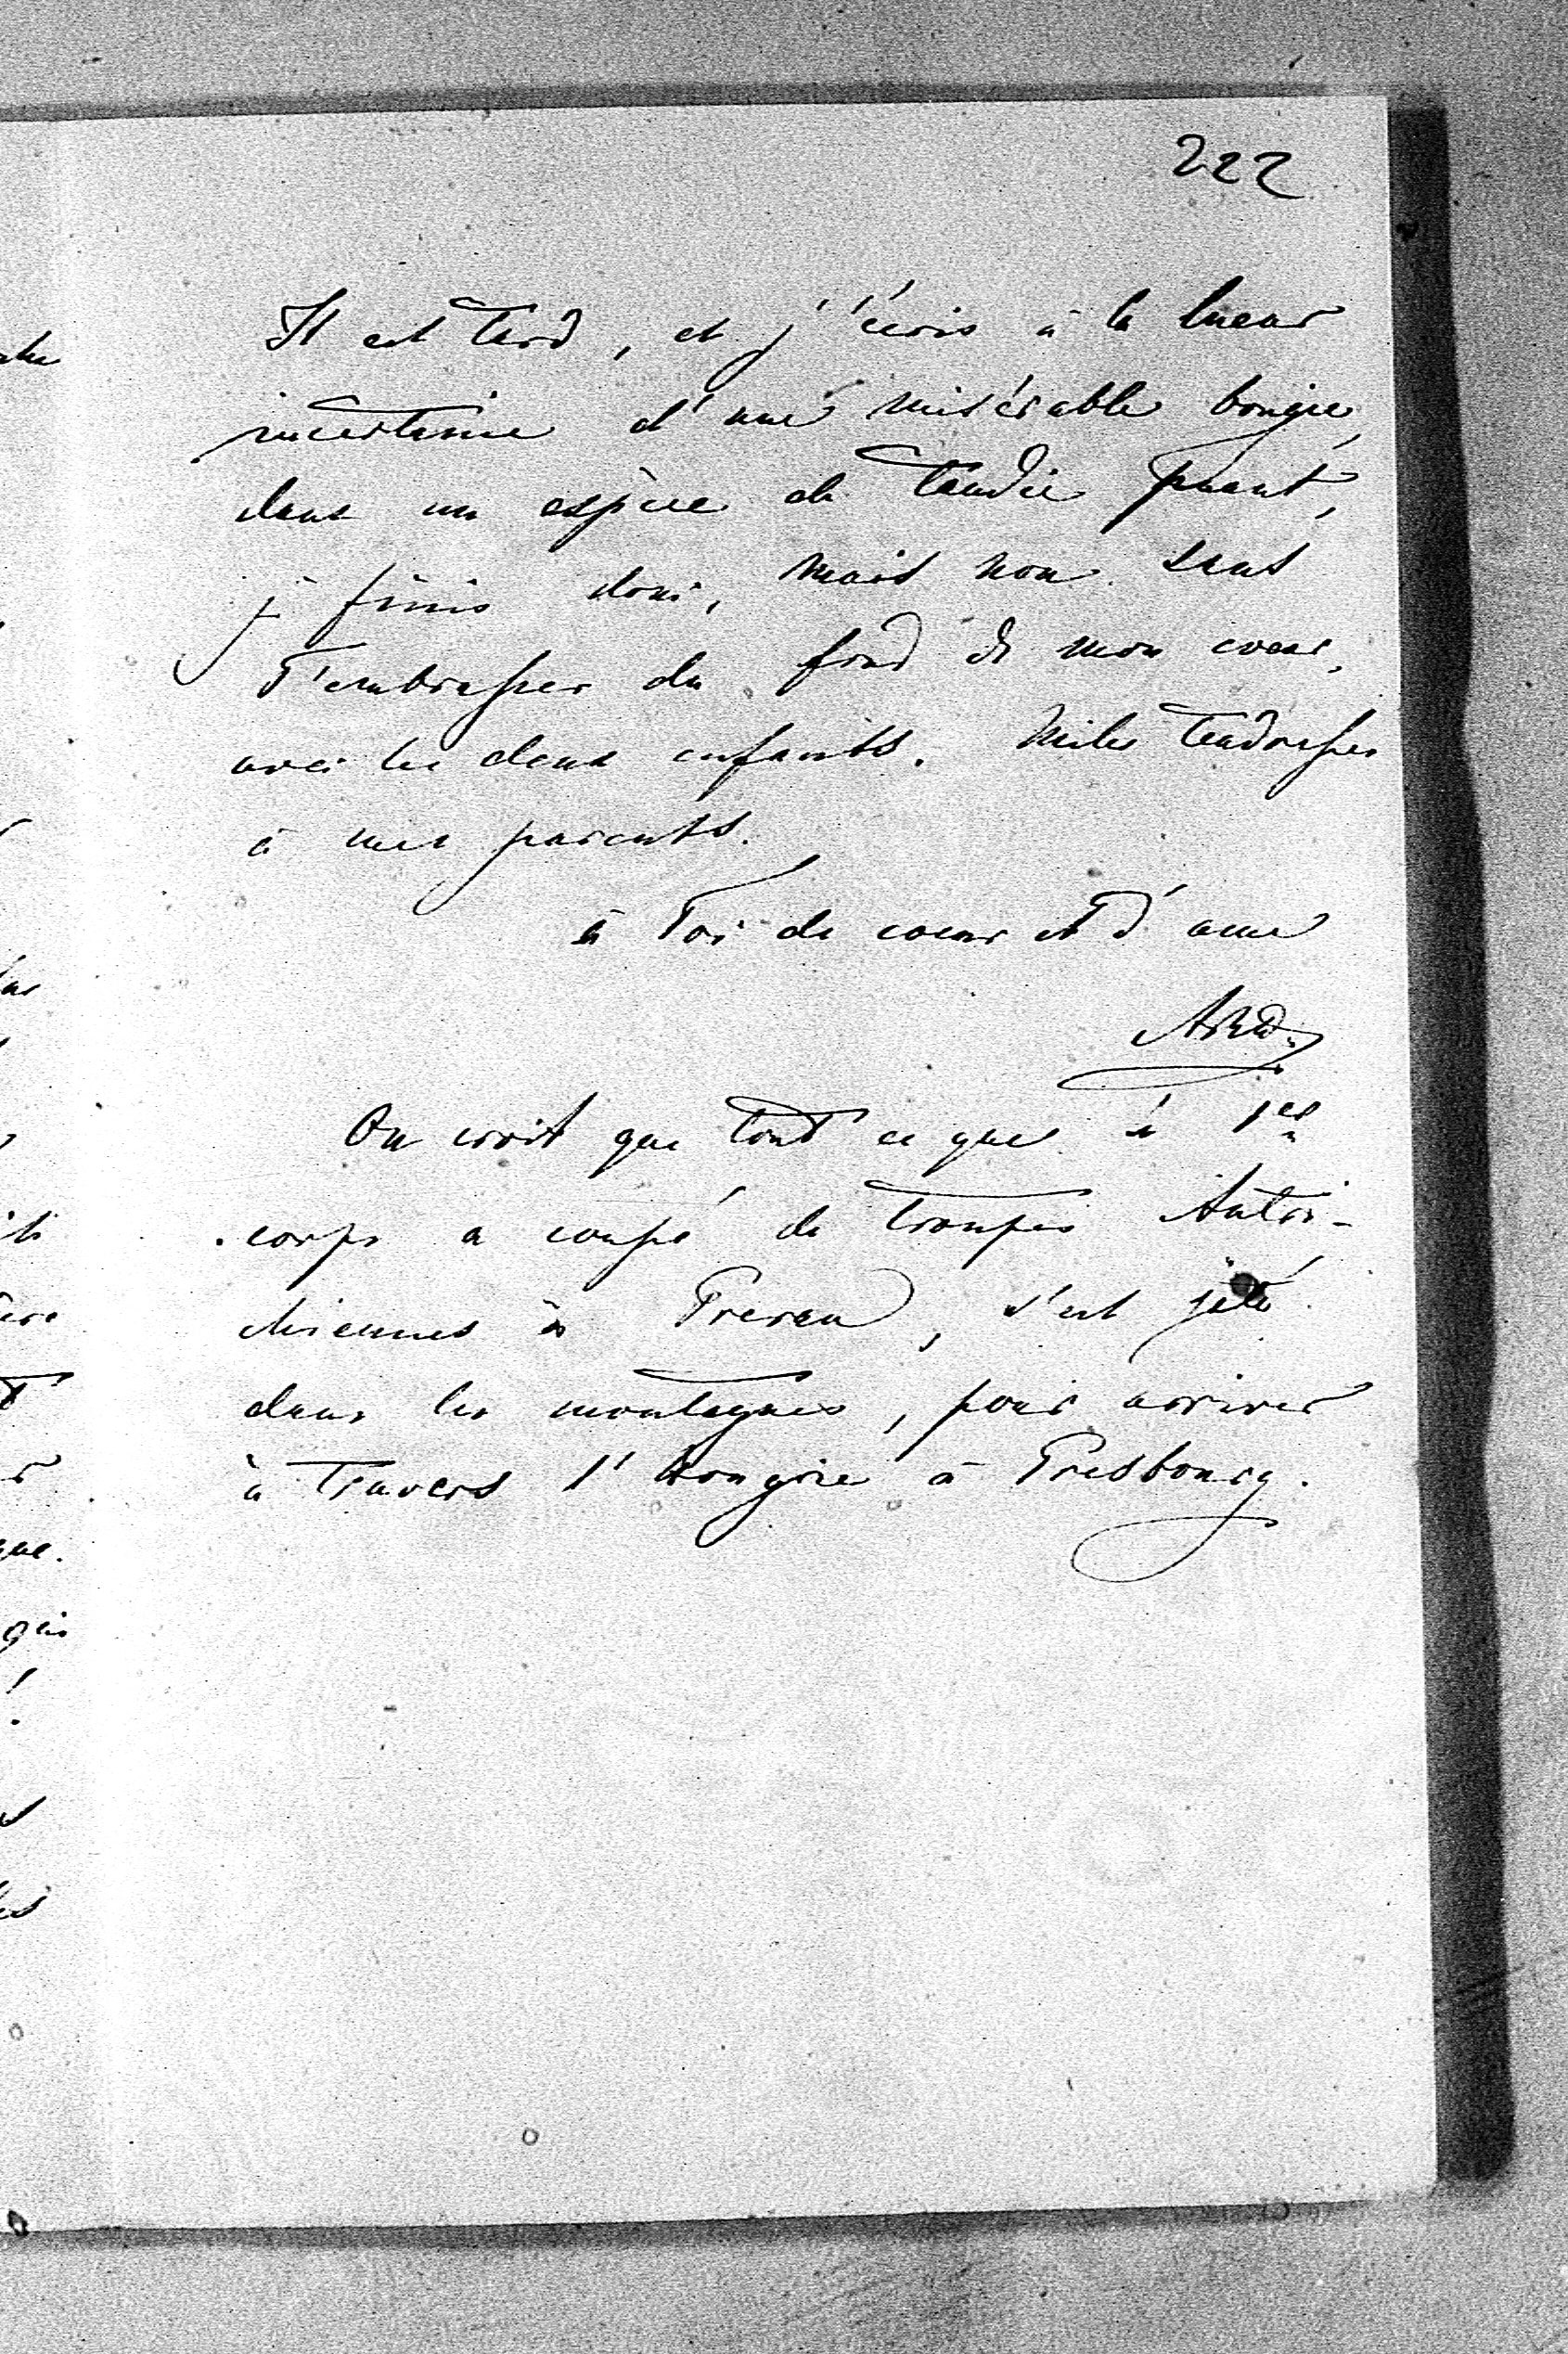 222
Il est tard, et j'écris à la lueur
incertaine d'une misérable bougie,
dans un espèce de taudie puant,
je finis donc, mais non sans
T'embrasser du fond de mon coeur,
avec les deux enfants. Miles tendresses
à mes parents.
à Toi de coeur et d'ame
On croit que tout ce que le 1er
corps a coupé de troupes Autri-
chiennes à Prerau, s'est jeté
dans les montagnes, pour arriver
à travers l'Hongrie à Presbourg.